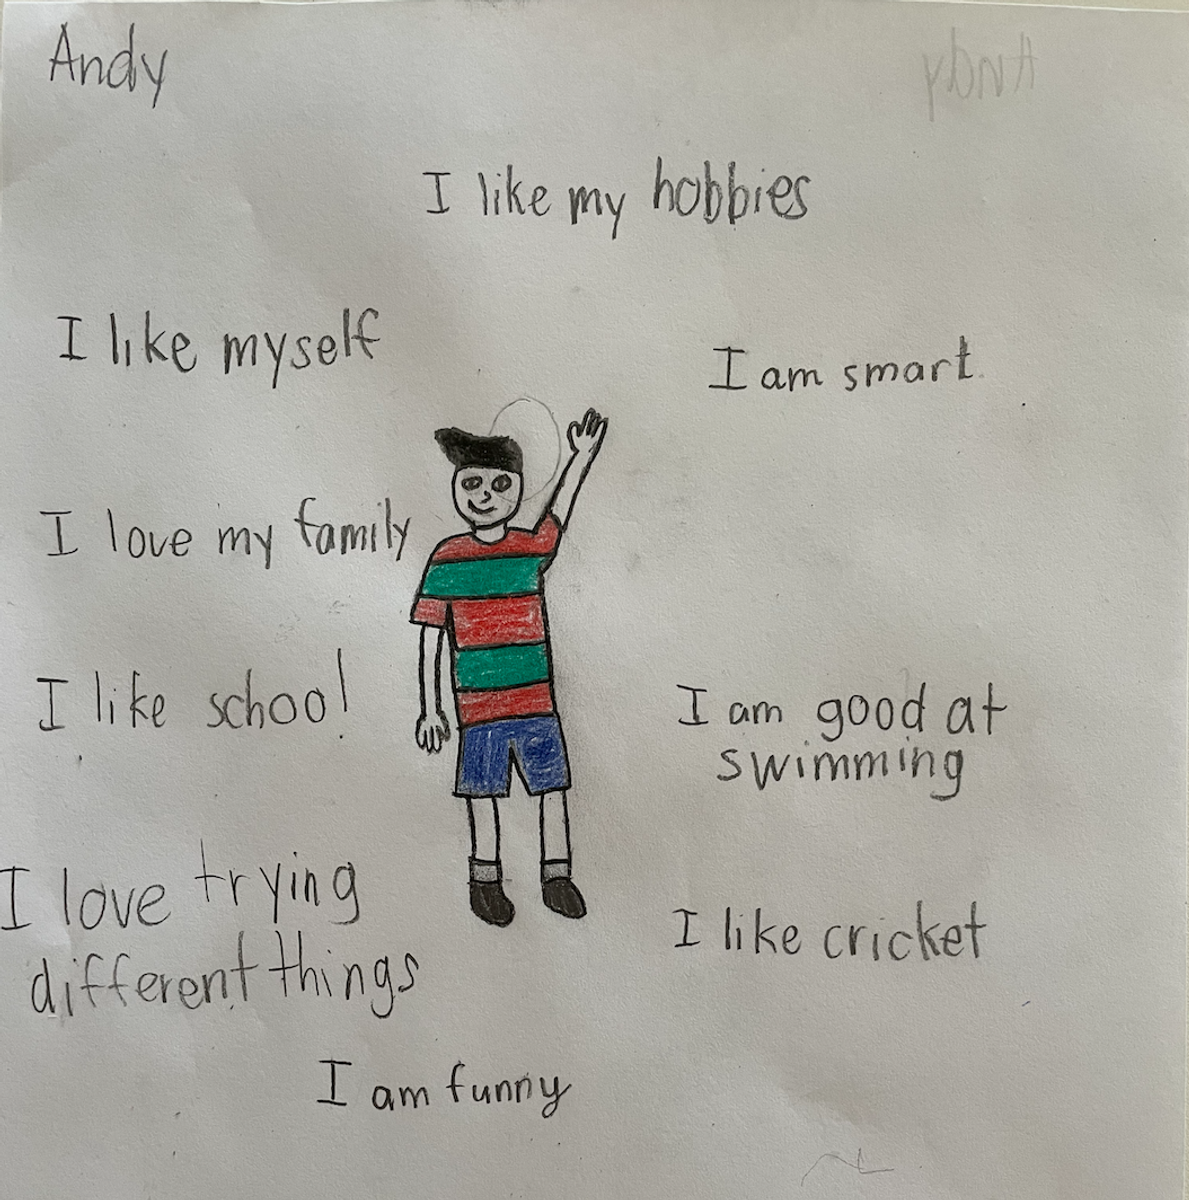 Andy
Andy
I like my hobbies
I like myself
I am smart
I love my family
I like school
I am good at
swimming
I love trying
different things
I like cricket
I am funny